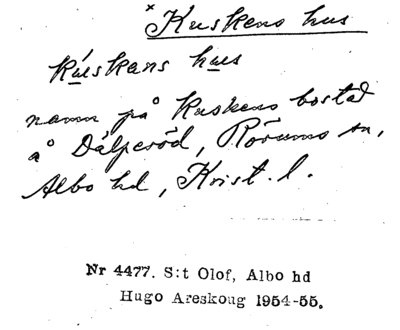 × Kuskens hus
Kúskans hus
namn på Kuskens bostad
å Dälperöd, Rörums sn,
Albo hd, Krist. l.
Nr 4477. S:t Olof, Albo hd
Hugo Areskoug 1954-55.